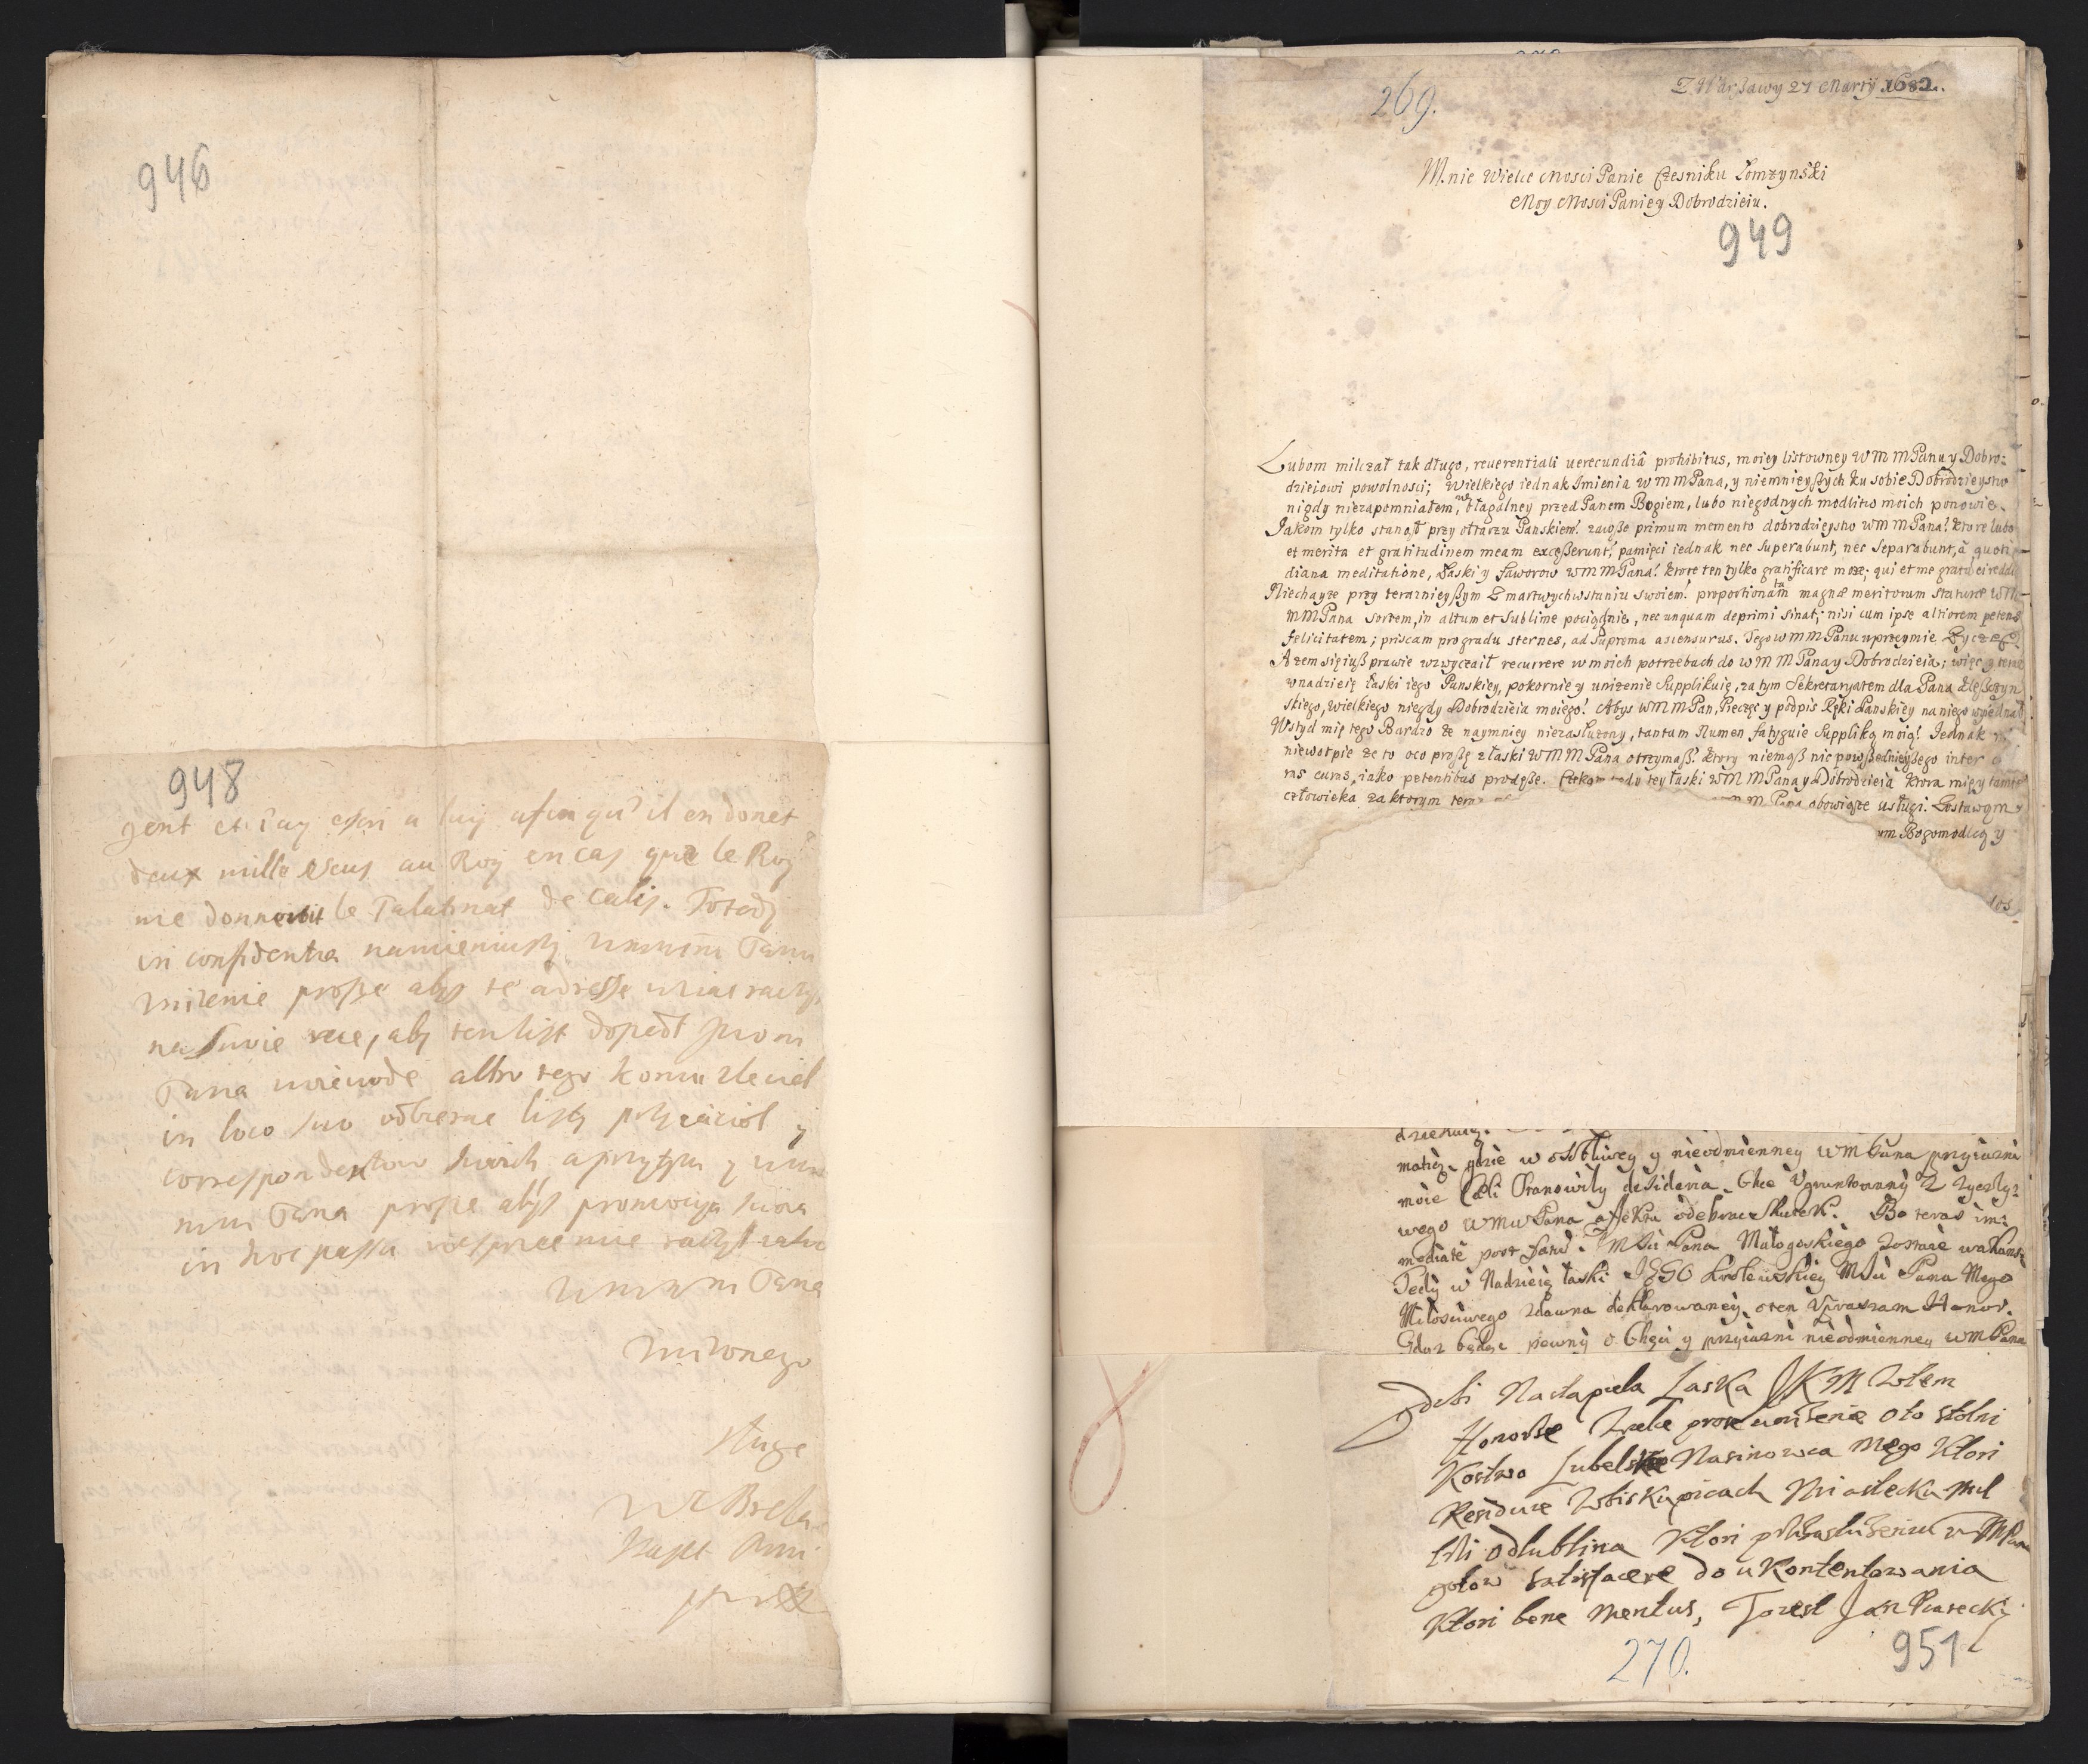 946
948
gent et i'ay escri a luy afin qu'il en donet
deux mille escus au Roy en cas que le Roy
me donneroit le Palatinat de Calis. To tedy
in confidentia namieniwszy
unizenie prosze abys te adresse wziac raczyl
na swoie rece, aby ten list dopedl
Pana woiewode albo tego komu zleciel
in loco suo odbierac listy przyiaciol y
correspondentow swoich, a przytym y
Pana prosze abys promocyja swoia
in hoc passu wesprzec mie raczyl
Pana
unizonego
sluge
269.
Z Warszawy 27 Marty 1682.
M. nie Wielce Mosci Panie Czesniku Łomzynski
Moy Mosci Panie y Dobrodzieiu.
949
Lubom milczał tak długo, reuerentiali uerecundiâ prohibitus, moiey listowney WMMPanu y Dobro:
dzieiowi powolnosci; Wielkiego iednak Imienia WMMPana, y niemnieyszych ku sobie Dobrodzieystw
nigdy niezapomniałem, w błagalney przed Panem Bogiem, lubo niegodnych modlitw moich ponowie.
Jakom tylko stanął przy ołtarzu Panskiem! zawsze primum memento dobrodzieystw WMMPana! ktore lubo
et merita et gratitudinem meam excesserunt, pamięci iednak nec superabunt, nec separabunt, à quoti
diana meditatione, Łaski y Faworow WMMPana! ktore ten tylko gratificare może; qui et me gratū ei reddi
Niechayże przy teraznieyszym Zmartwychwstaniu swoiem! proportionatam magnæ meritorum staturæ WM
MMPana sortem, in altum et sublime pociągnie, nec unquam deprimi sinat; nisi cum ipse altiorem petens
felicitatem; priscam pro gradu sternes, ad suprema ascensurus. Tego WMMPanu uprzeymie Życzę
A żem się iusz prawie wzwyczaił recurrere w moich potrzebach do WMMPana y Dobrodzieia; więc y teraz
w nadzieię łaski iego Panskiey, pokornie y unizenie Supplikuię, za tym Sekretaryatem dla Pana
skiego, wielkiego niegdy Dobrodzieia moiego! Abys WMMPan, Pieczęć y podpis Ręki Panskiey na niego wyiednał
Wstyd mię tego Bardzo że naymniey niezasłużony, tantum Numen fatyguie Suppliką moią! Jednak
niewątpię że to o co proszę z łaski WMMPana otrzymasz! ktory niemasz nic powszednieyszego inter
ras curas, iako petentibus prodesse. tey łaski WMMPana y Dobrodzieia ktora mię y tamtego
człowieka za ktorym teraz M Pana obowiąże usługi. Zostawam
um Bogomodlcą y
dziekuię.
matię, gdzie w osobliwey y nieodmienney WMPana przyiazni
moie całe stanowiły desideria. Chce Vgruntowanny z zyczly:
wego WMMPana affektu odebrac skutek. Bo teraz im:
mediate post fata IMSci Pana Małogoskiego zostaie wakans:
Tedy w Nadzieię łaski IEGO Krolewskiey MSci Pana Mego
Miłosciwego zdawna deklarowaney, o ten Vpraszam Honor.
Gdyz będąc pewny o Chęci y przyiazni nieodmienney WMPana
Zebi Nastapiela Laska JKM Wtem
Honorse Tudie prose unizenie oto Stolni
Kostwo Lubelskie Nasinowca Mego Ktori
Residuie Wbiskupicach Miastecku Mil
odlublina Ktori
gotow satisfacere do ukontentowania
Ktori bene meritus, To iest Jan Piasecki
270.
951